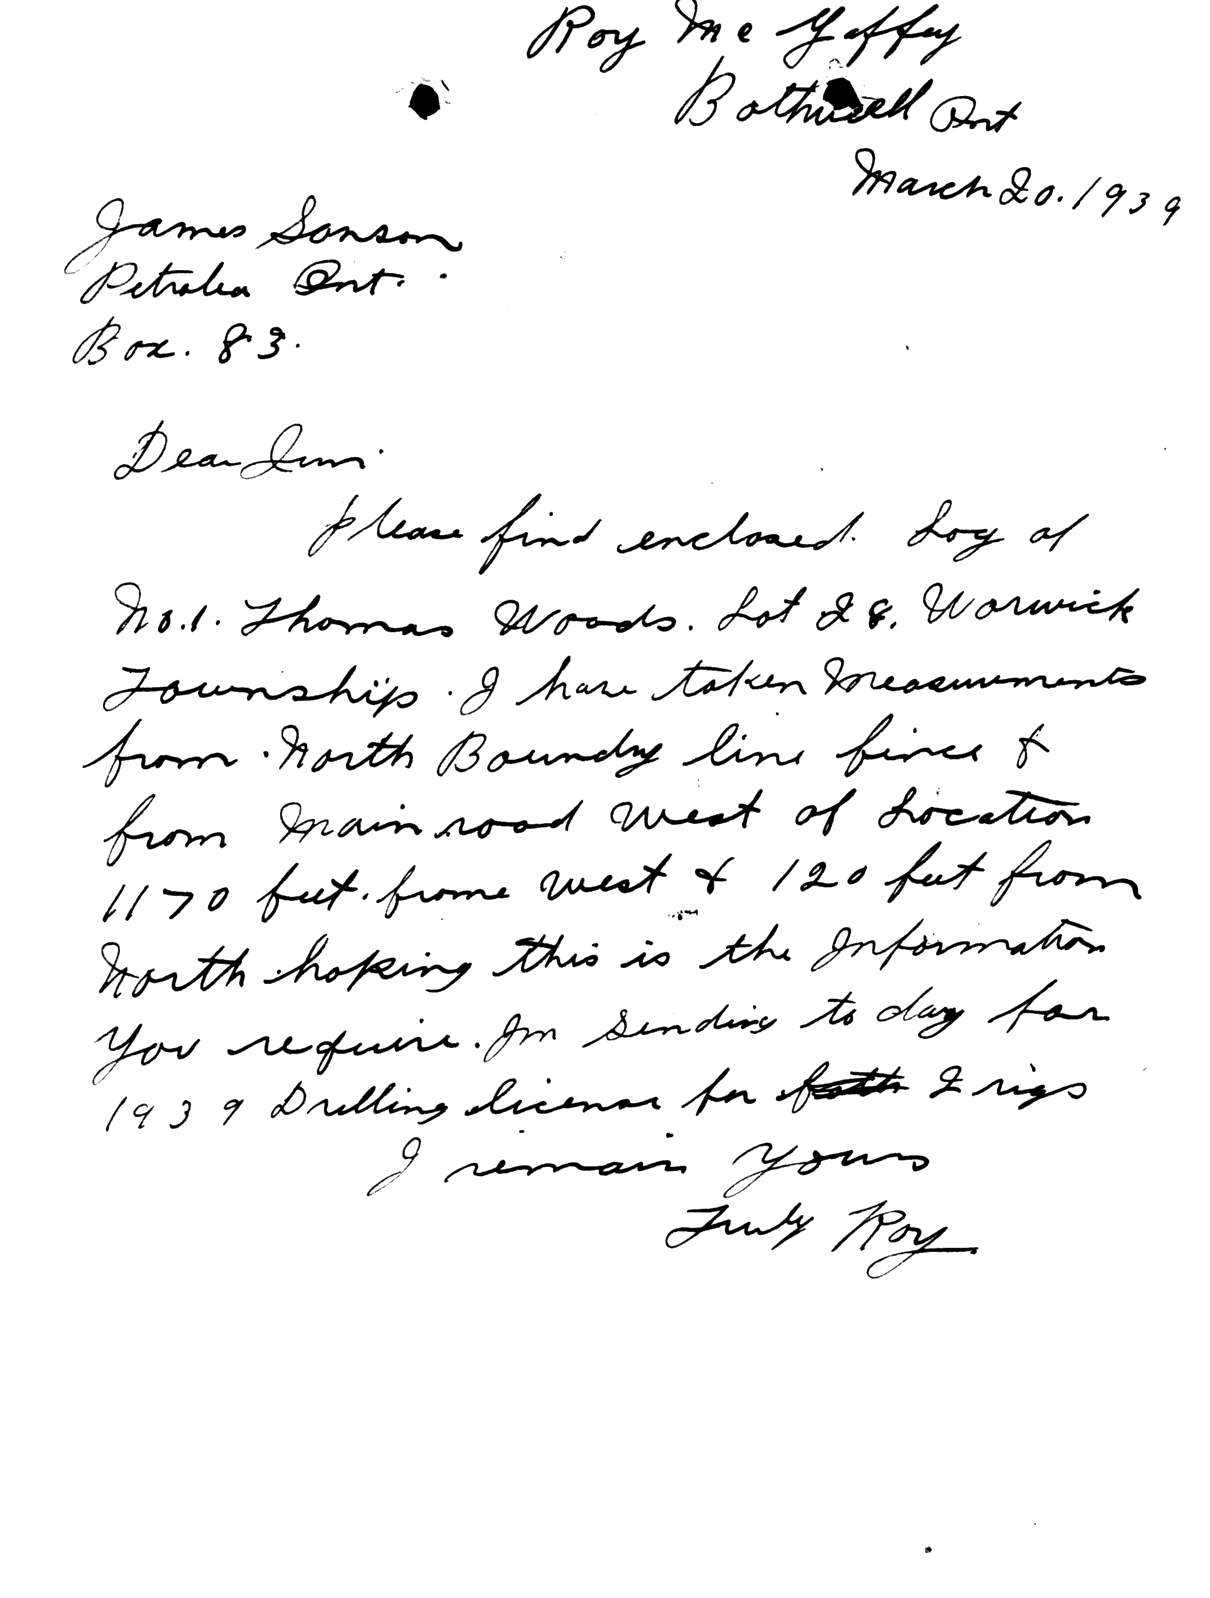 Roy Mc Gaffey
Bothwell Ont
March 20. 1939
James Sanson
Petrolea Ont.
Box. 83.
Dear Jim.
please find enclosed. Log of
No.1. Thomas Woods. Lot 28. Warwick
Township. I have taken Measurments
from North Boundry line fence &
from Main road West of Location
1170 feet. frome West & 120 feet from
North hoping this is the Information
You require. Im Sending to day for
1939 Drilling license for 2 rigs
I remain Yours
Truly Roy